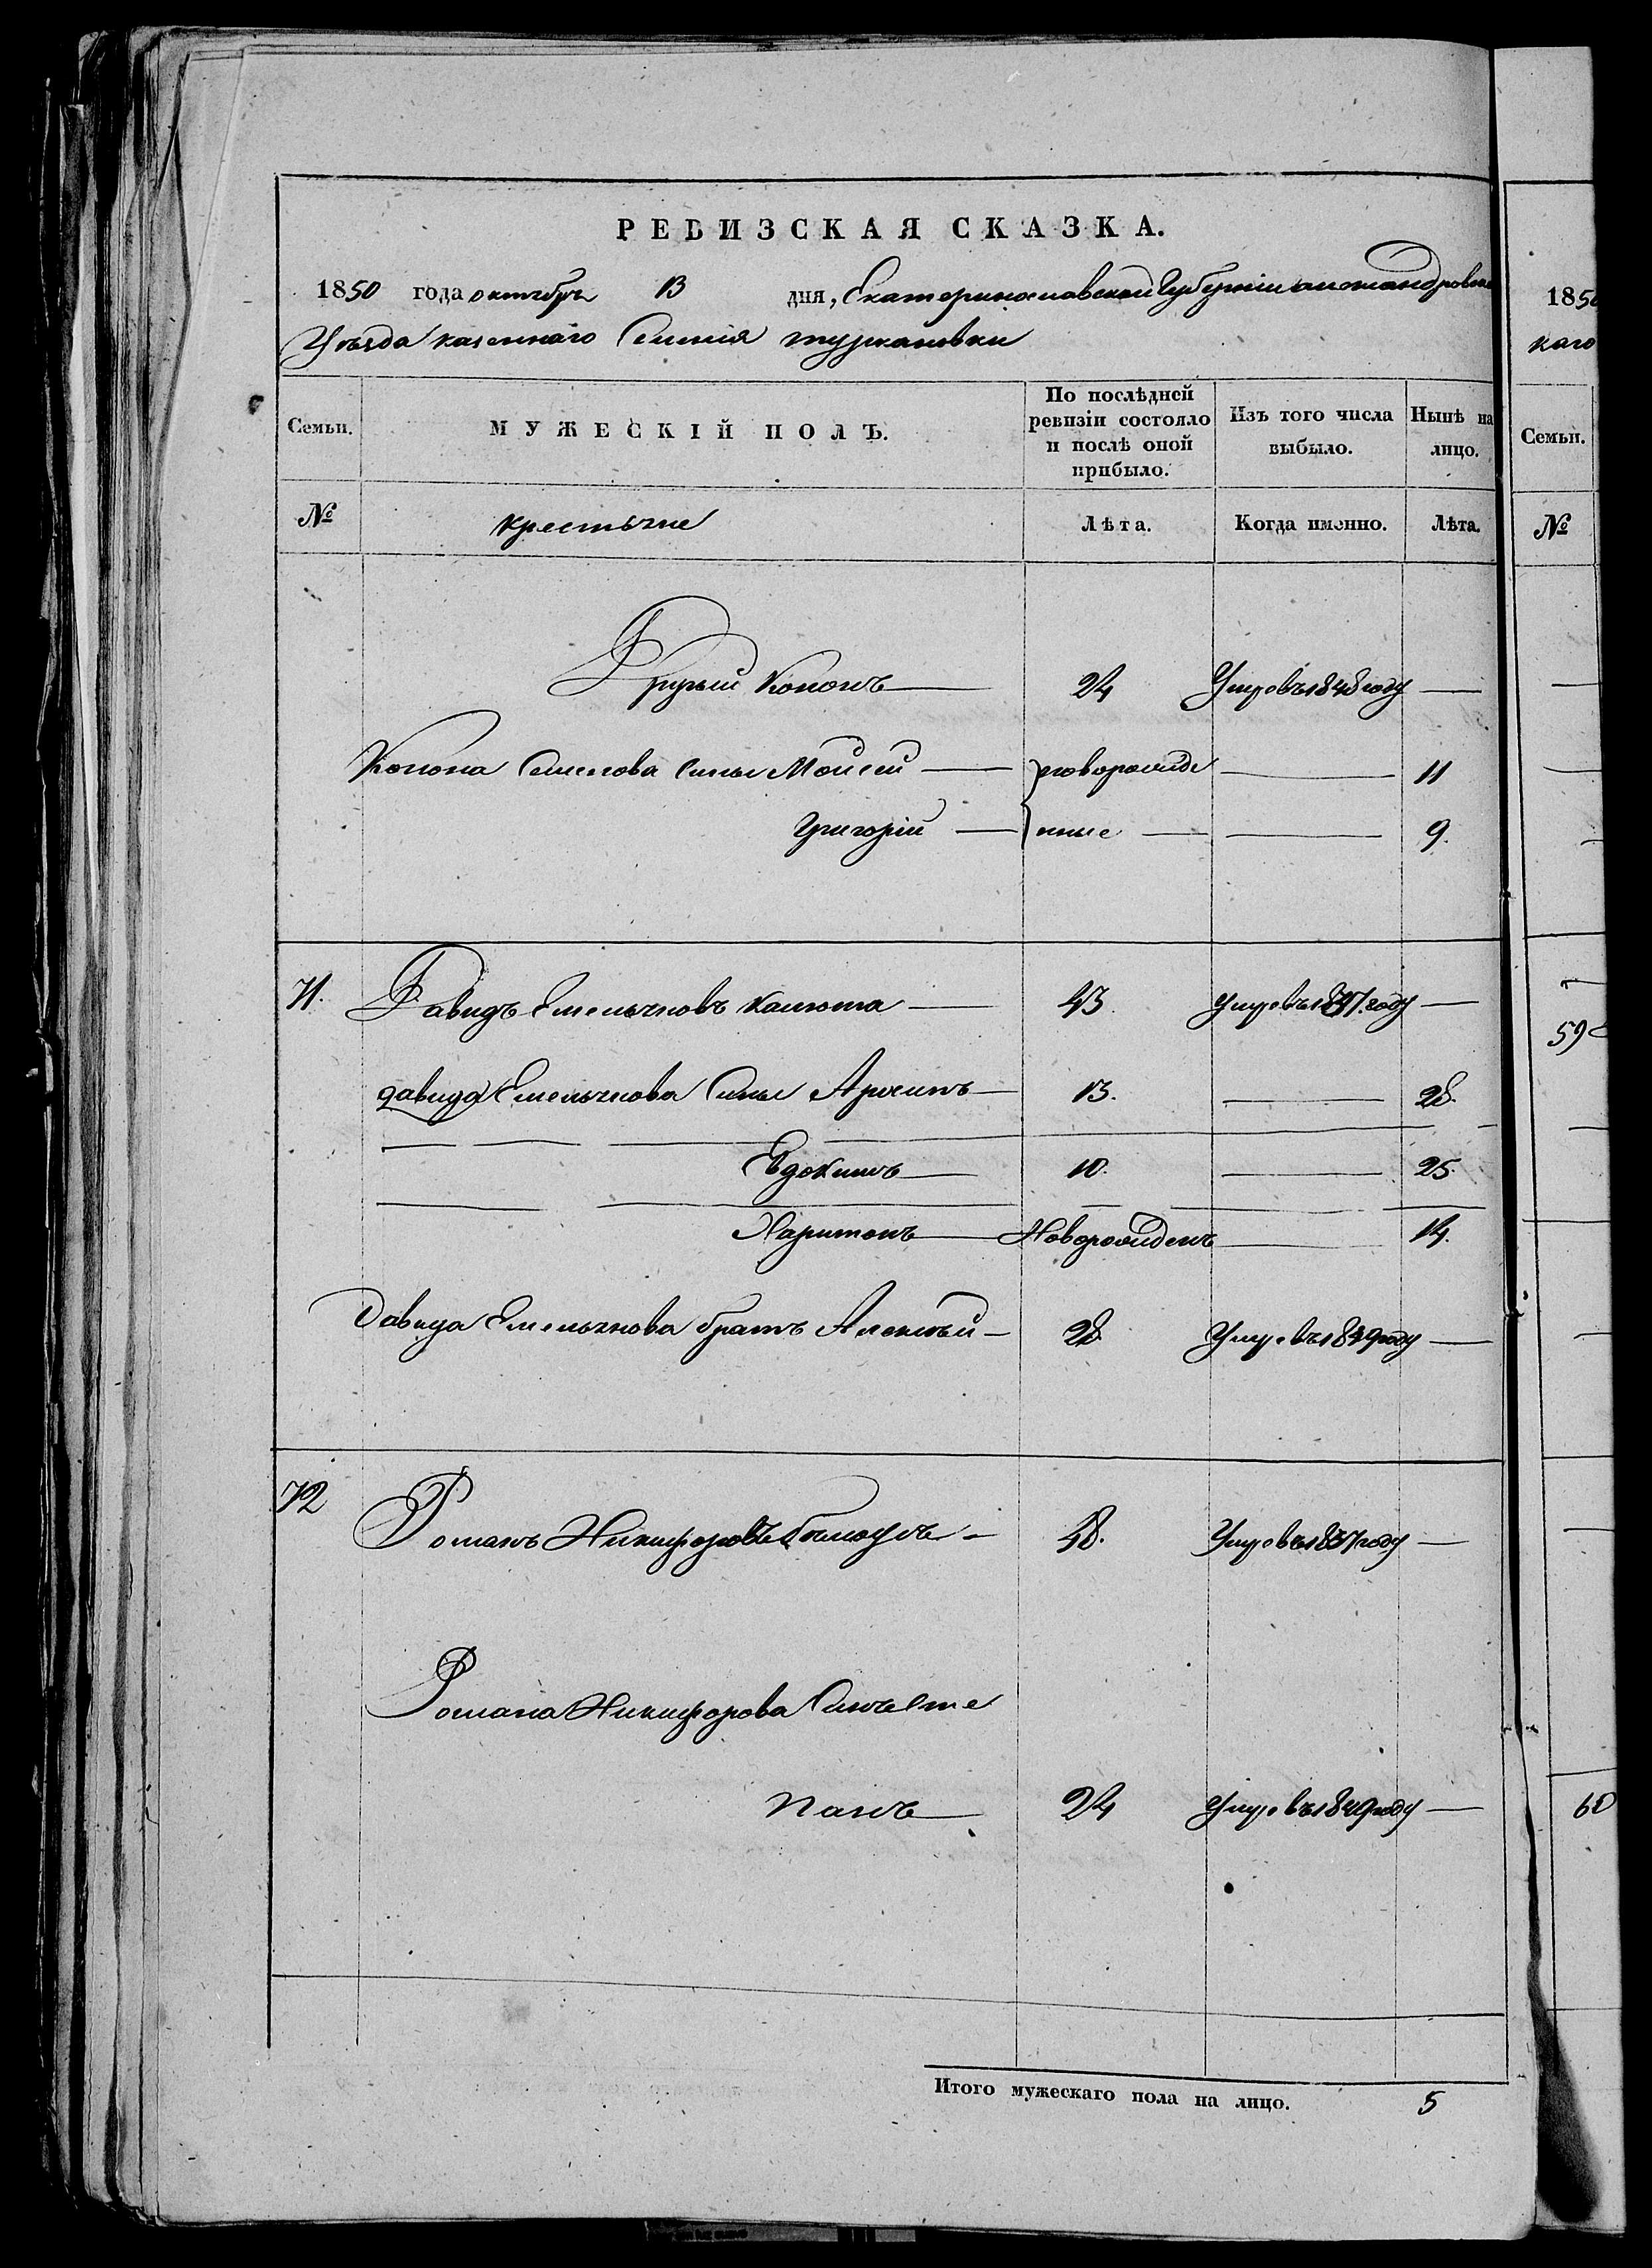 РЕВИЗСКАЯ СКАЗКА.
1850 года октября 13 дня, Екатеринославской Губерніи александровска
Уѣзда казеннаго Селенія туркановки
Семьи. МУЖЕСКІЙ ПОЛЪ. По послѣдней ревизіи состояло и послѣ оной прибыло. Изъ того числа выбыло. Нынѣ на лицо.
№ крестьяне Лѣта. Когда именно. Лѣта.
Другий Кононъ 24 Умре въ 1848 году
Конона Семенова Сыны Моисей новорожде 11
Григорій нные 9
71. Давидъ Емельяновъ Калюта 43. умре въ 1847 году
давида Емельянова Сыны Архипъ 13. 28.
Евдокимъ 10. 25.
Харитонъ Новорожденъ 14.
Давида Емельянова братъ Алексѣй 28 Умре въ 1849 году
72 Романъ Никифоровъ 48. Умре въ 1837 году
Романа Никифорова Сынъ Сте
панъ 24 Умре въ 1849 году
Итого мужескаго пола на лицо. 5
185
каго
Семьи.
№
59
60